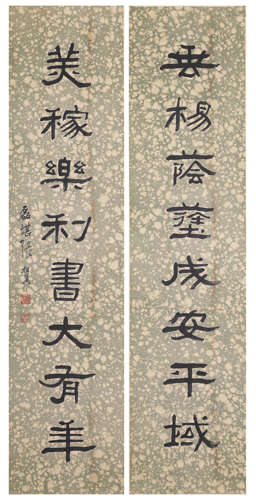 垂楊蔭蓬成安平域
美稼樂利書大有年